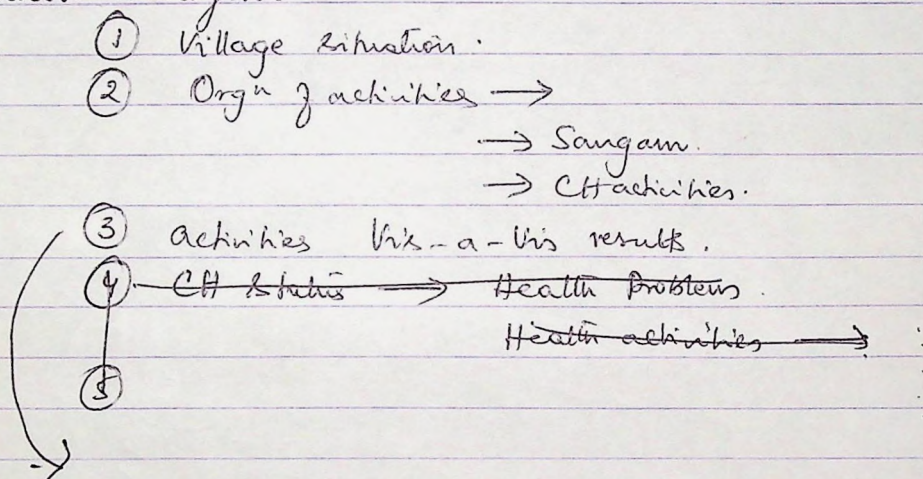 ① Village situation.
② Orgn of activities →
→ Sangam.
→ CH activities.
③ activities Vis-a-Vis results.
④ CH Status → Health Problems.
Health activities →
⑤